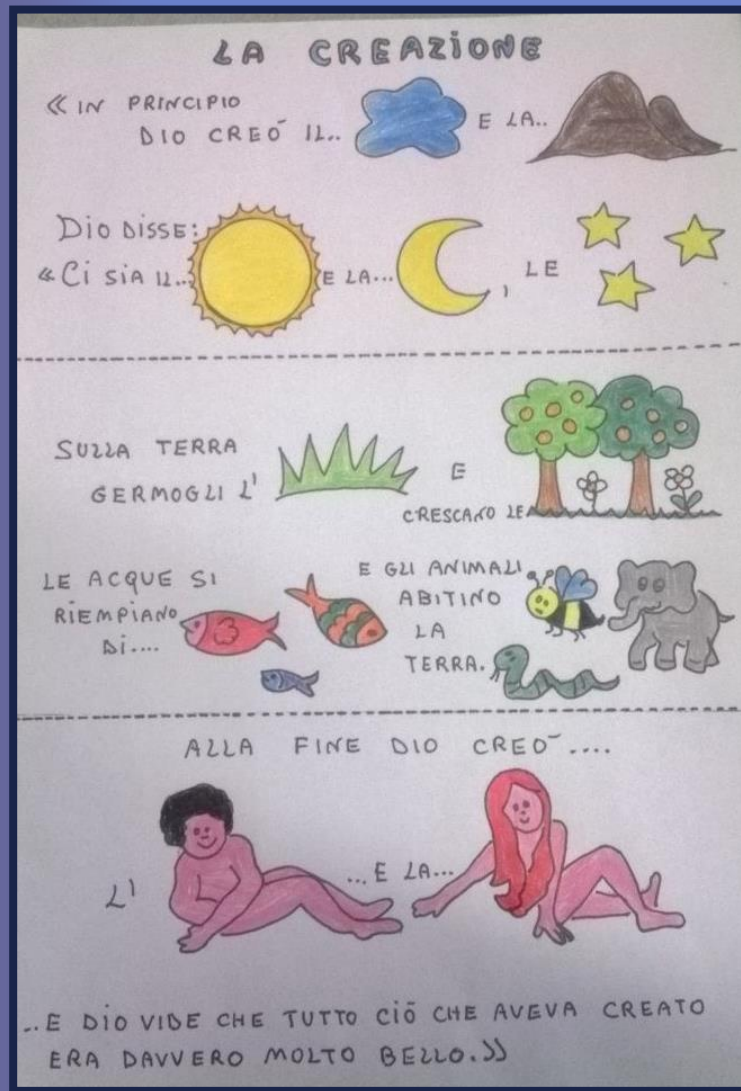 LA CREAZIONE
« IN PRINCIPIO
DIO CREÒ IL.. E LA..
DIO DISSE:
« Ci SIA IL... E LA... , LE
SULLA TERRA
GERMOGLI L' E
CRESCANO LE
LE ACQUE SI
RIEMPIANO
Di....
E GLI ANIMALI
ABITINO
LA
TERRA.
ALLA FINE DIO CREÒ....
L' ...E LA...
..E DIO VIDE CHE TUTTO CIÒ CHE AVEVA CREATO
ERA DAVVERO MOLTO BELLO.»